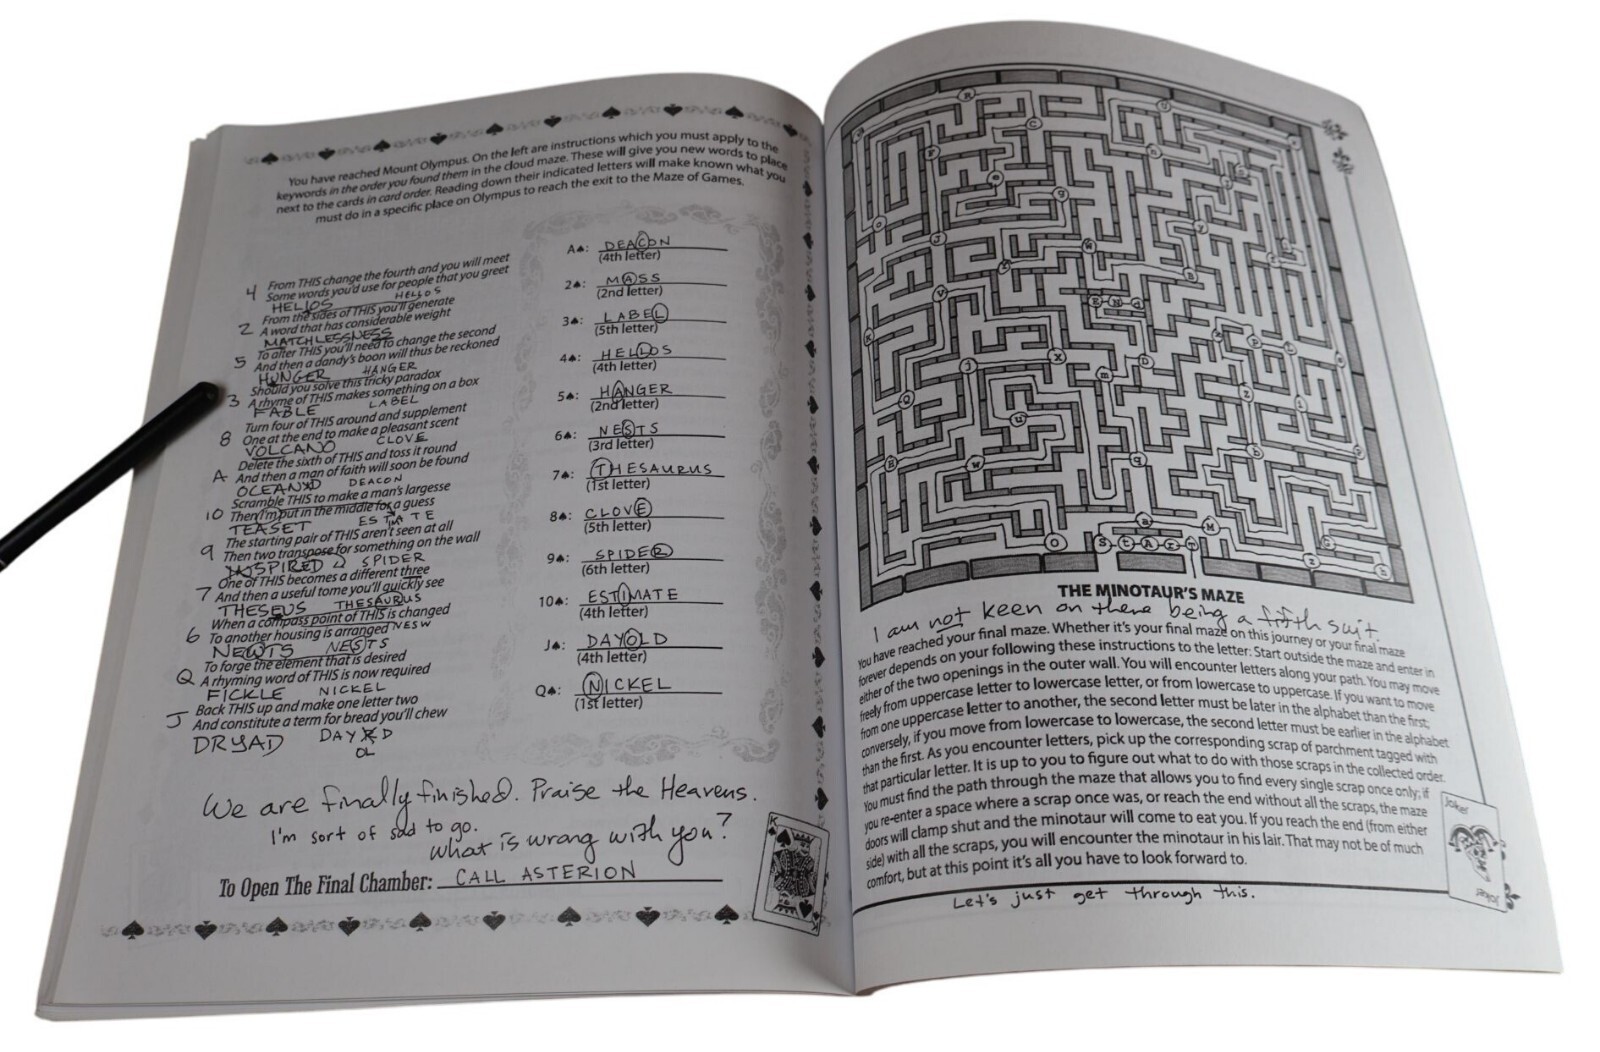 You have reached Mount Olympus. On the left are instructions which you must apply to the
keywords in the order you found them in the cloud maze. These will give you new words to place
next to the cards in card order. Reading down their indicated letters will make known what you
must do in a specific place on Olympus to reach the exit to the Maze of Games.
From THIS change the fourth and you will meet
4 Some words you'd use for people that you greet
HELIOS HELLOS
From the sides of THIS you'll generate
2 A word that has considerable weight
MATCHLESSNESS
To alter THIS you'll need to change the second
5 And then a dandy's boon will thus be reckoned
HUNGER HANGER
Should you solve this tricky paradox
3 A rhyme of THIS makes something on a box
FABLE LABEL
Turn four of THIS around and supplement
8 One at the end to make a pleasant scent
VOLCANO CLOVE
Delete the sixth of THIS and toss it round
A And then a man of faith will soon be found
OCEANID DEACON
Scramble THIS to make a man's largesse
10 Then I'm put in the middle for a guess
TEASET ESTATE
IM
The starting pair of THIS aren't seen at all
9 Then two transpose for something on the wall
INSPIRED SPIDER
One of THIS becomes a different three
7 And then a useful tome you'll quickly see
THESEUS THESAURUS
When a compass point of THIS is changed
6 To another housing is arranged NESW
NEWTS NESTS
To forge the element that is desired
Q A rhyming word of THIS is now required
FICKLE NICKEL
Back THIS up and make one letter two
J And constitute a term for bread you'll chew
DRYAD DAYRD
OL
A♠: DEACON
(4th letter)
2♠: MASS
(2nd letter)
3♠: LABEL
(5th letter)
4♠: HELLOS
(4th letter)
5♠: HANGER
(2nd letter)
6♠: NESTS
(3rd letter)
7♠: THESAURUS
(1st letter)
8♠: CLOVE
(5th letter)
9♠: SPIDER
(6th letter)
10♠: ESTIMATE
(4th letter)
J♠: DAYOLD
(4th letter)
Q♠: NICKEL
(1st letter)
We are finally finished. Praise the Heavens.
I'm sort of sad to go.
What is wrong with you?
To Open The Final Chamber: CALL ASTERION
K
K
E N d
S t A r T
THE MINOTAUR'S MAZE
I am not keen on there being a fifth suit.
You have reached your final maze. Whether it's your final maze on this journey or your final maze
forever depends on your following these instructions to the letter: Start outside the maze and enter in
either of the two openings in the outer wall. You will encounter letters along your path. You may move
freely from uppercase letter to lowercase letter, or from lowercase to uppercase. If you want to move
from one uppercase letter to another, the second letter must be later in the alphabet than the first;
conversely, if you move from lowercase to lowercase, the second letter must be earlier in the alphabet
than the first. As you encounter letters, pick up the corresponding scrap of parchment tagged with
that particular letter. It is up to you to figure out what to do with those scraps in the collected order.
You must find the path through the maze that allows you to find every single scrap once only; if
you re-enter a space where a scrap once was, or reach the end without all the scraps, the maze
doors will clamp shut and the minotaur will come to eat you. If you reach the end (from either
side) with all the scraps, you will encounter the minotaur in his lair. That may not be of much
comfort, but at this point it's all you have to look forward to.
Joker
Joker
Let's just get through this.